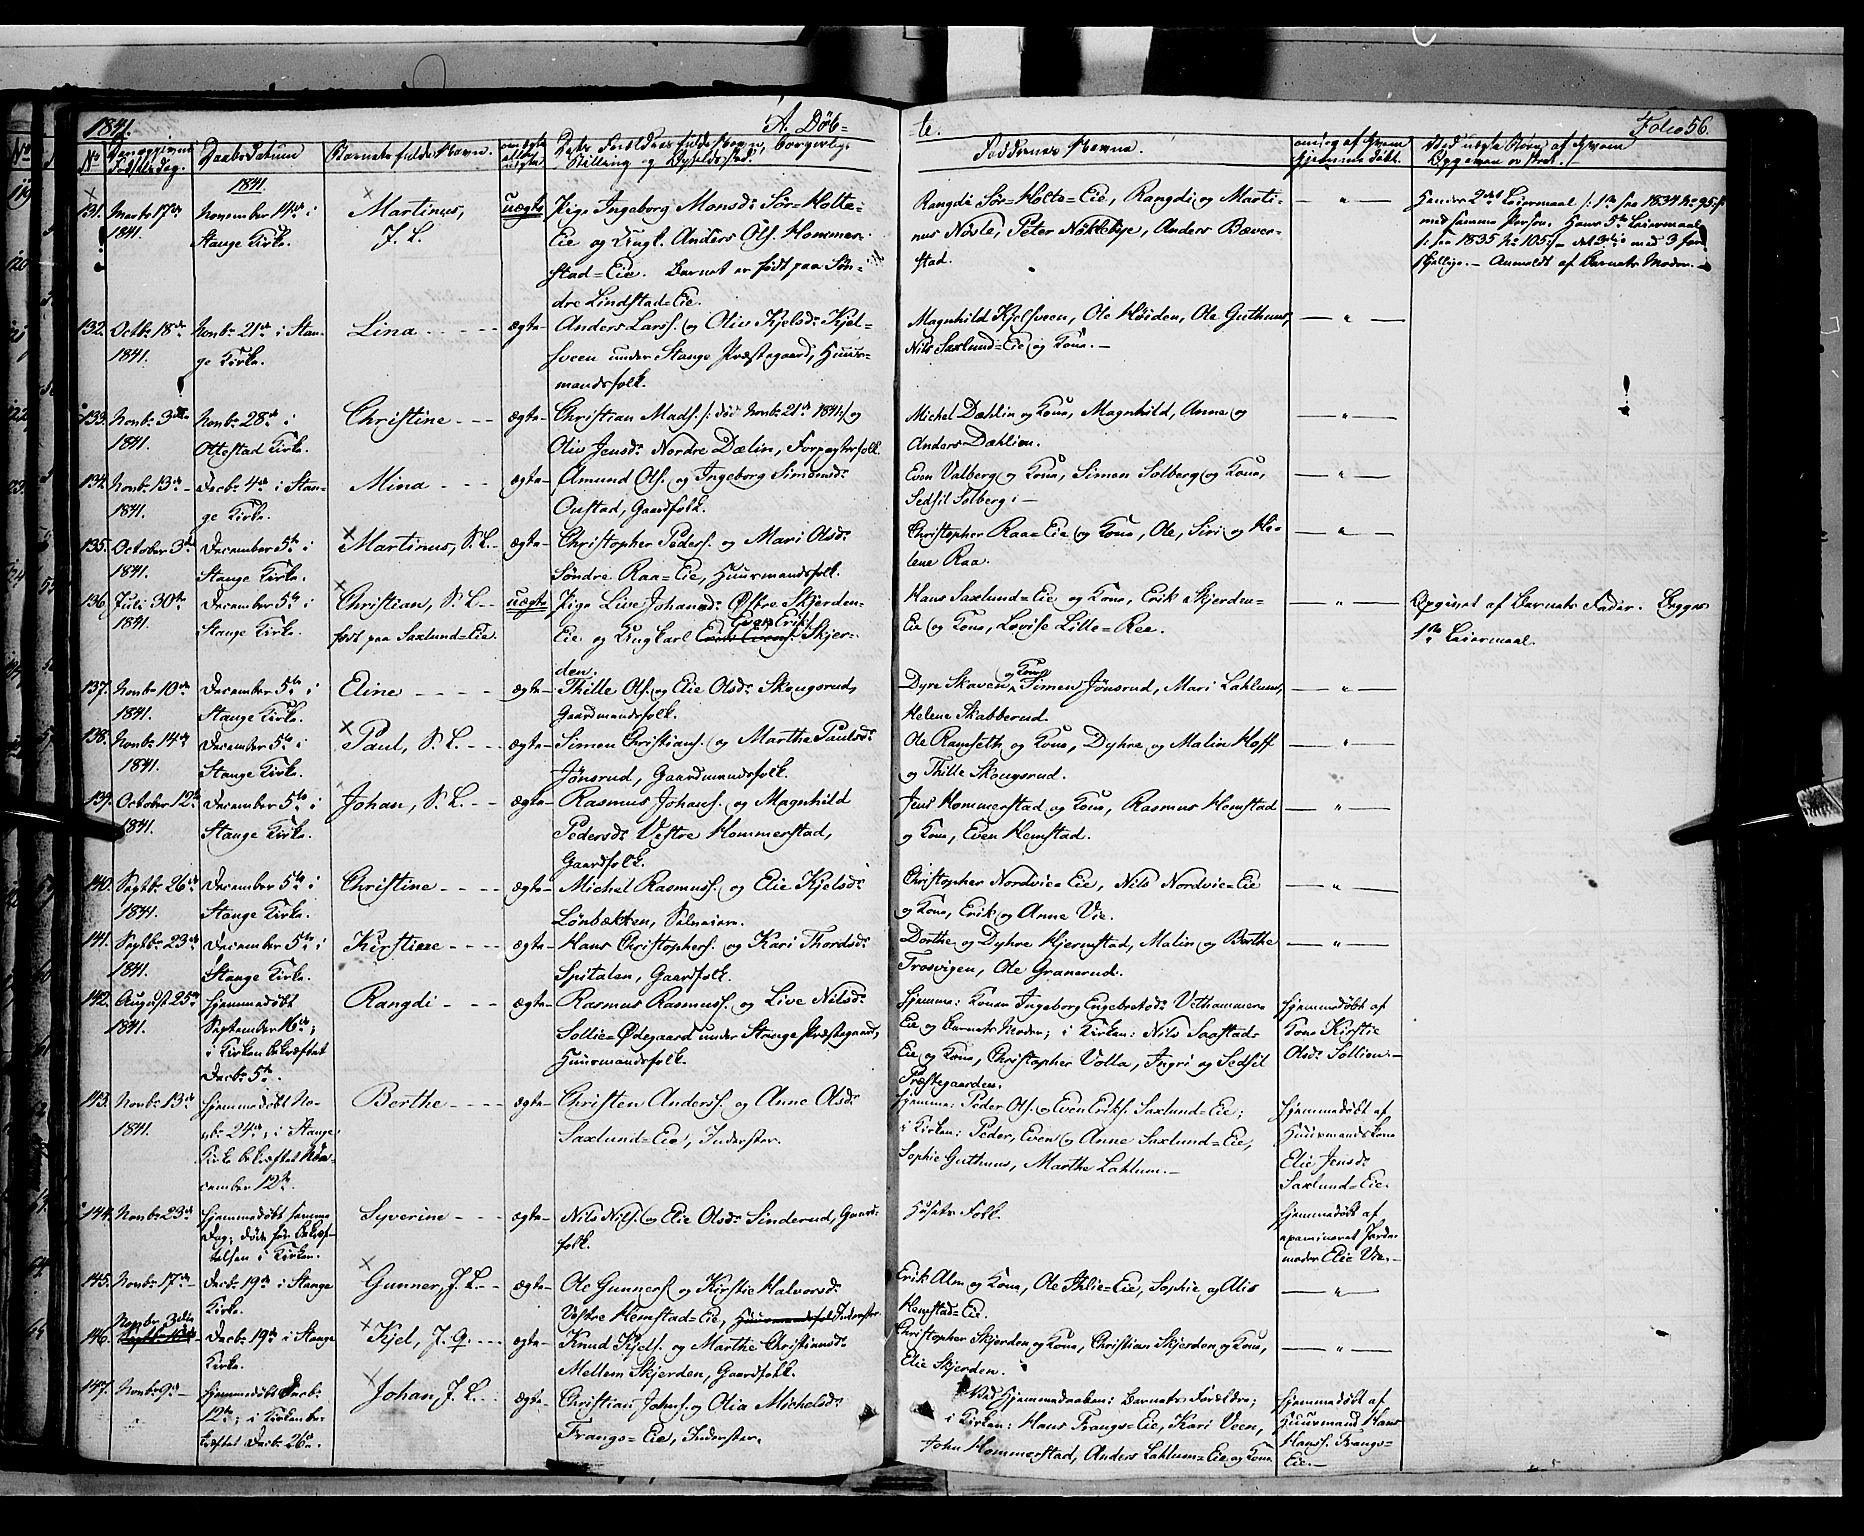 1841.
A. Døb=
te.
Folio 56.
No
Barnets fulde Navn.
Faddernes Navne.
1841.
131. Marts 17de November 14de i Martinus, uægte Pige Ingeborg Monsd. Sør=Holte= Rangdi Sør=Holte=Eie, Rangdi og Marti=
1841. Stange Kirke. J. L. Eie og Ungk. Anders Ols. Hommer= nus Nøsle, Peter Nøkleby, Anders Bæver=
stad=Eie. Barnet er født paa Søn= stad.
dre Lindstad=Eie.
Hendes 2det Leiermaal
med samme Person. Hans 5te Leiermaal
Anmeldt af Barnets Moder.
132. Octbr. 18de Novbr. 21de i Stan= Lina ægte Anders Lars. og Oliv Kjelsd. Kjel= Magnhild Kjelsveen, Ole Høiden, Ole Guthuus,
1841. ge Kirke. sveen under Stange Præstegaard, Huus= Nils Saxlund=Eie og Kone.
mandsfolk.
133. Novbr. 3die Novbr. 28de i Christine ægte Christian Mads. /: død Novbr. 21de 1841:/ og Michel Dæhlin og Kone, Magnhild, Anne og
1841. Ottestad Kirke. Oliv Jensd. Nordre Dælin, Forpagterfolk. Anders Dæhlin.
134. Novbr. 13de Decbr. 4de i Stan= Mina ægte Amund Ols. og Ingeborg Simensd. Even Valberg og Kone, Simen Solberg og Kone,
1841. ge Kirke. Oustad, Gaardfolk. Sedsil Solberg
135. October 3de December 5te i Martinus, S. L. ægte Christopher Peders. og Mari Olsd. Christopher Raa=Eie og Kone, Ole, Siri og He=
1841. Stange Kirke. Søndre Raa=Eie, Huusmandsfolk. lene Raa.
136. Juli 30te December 5te i Christian, S. L. uægte Pige Live Johansd. Østre Skjerden= Hans Saxlund=Eie og Kone, Erik Skjerden= Opgivet af Barnets Fader. Begges
1841. Stange Kirke. født paa Saxlund=Eie Eie og Ungkarl Even Eriks. Skjer= Eie og Kone, Lovise Lille=Ree. 1ste Leiermaal.
den.
137. Novbr. 10de December 5te i Eline ægte Thille Ols. og Elie Olsd. Skougsrud, Dyre Skaven og Kone, Simen Jønsrud, Mari Lahlum,
1841. Stange Kirke. Gaardmandsfolk. Helene Skabberud.
138. Novbr. 14de December 5te i Paul, S. L. ægte Simen Christians. og Marthe Paulsd. Ole Ramseth og Kone, Dyhre og Malin Hoff
1841. Stange Kirke. Jønsrud, Gaardmandsfolk. og Thille Skougsrud.
139. October 12te December 5te i Johan, S. L. ægte Rasmus Johans. og Magnhild Jens Hommerstad og Kone, Rasmus Hemstad
1841. Stange Kirke. Pedersd. Vestre Hommerstad, og Kone, Even Hemstad.
Gaardfolk.
140. Septbr. 26de December 5te i Christine ægte Michel Rasmuss. og Elie Kjelsd. Christopher Nordvie=Eie, Nils Nordvie=Eie
1841. Stange Kirke. Lønbækken, Selveiere. og Kone, Erik og Anne Vie.
141. Septbr. 23de December 5te i Kirstine ægte Hans Christophers. og Kari Thordsd. Dorthe og Dyhre Hjermstad, Malin og Berthe
1841. Stange Kirke. Spitalen, Gaardfolk. Frosvigen, Ole Granerud.
142. August 25de hjemmedøbt Rangdi ægte Rasmus Rasmuss. og Live Nilsd. Hjemme: Konen Ingeborg Engebretsd. Vethammer= hjemmedøbt af
1841. September 16de; Sollie=Ødegaard under Stange Præstegaard, Eie og Barnets Moder; i Kirken: Nils Saastad= Kone Kirstie
i Kirken bekræftet Huusmandsfolk. Eie og Kone, Christopher Volla, Ingri og Sedsil Olsd. Sollien.
Decbr. 5te. Præstegaarden.
143. Novbr. 13de hjemmedøbt No= Berthe ægte Christen Anders. og Anne Olsd. Hjemme: Peder Ols. og Even Eriks. Saxlund=Eie; hjemmedøbt af
1841. vbr. 24de; i Stange Saxlund=Eie, Inderster. i Kirken: Peder, Even og Anne Saxlund=Eie, Huusmandskone
Kirke bekræftet De= Sophie Guthuus, Marthe Lahlum. Elie Jensd.
cember 12te. Saxlund=Eie.
144. Novbr. 23de hjemmedøbt samme Syverine ægte Nils Nils. og Elie Olsd. Sinderud, Gaard= Husets Folk. hjemmedøbt af
Dag; døde før bekræf= folk. examineret Jorde=
telsen i Kirken. moder Elie Vie.
145. Novbr. 17de Decbr. 19de i Stange Gunner, J. L. ægte Ole Gunners. og Kirstie Halvorsd. Erik Alm og Kone, Ole Ihlie=Eie, Sophie og Alis
Kirke. Vestre Hemstad=Eie, Inderster. Hemstad=Eie.
146. Novbr. 3die Decbr. 19de i Stange Kjel, J. G. ægte Knud Kjels. og Marthe Christiansd. Christopher Skjerden og Kone, Christian Skjerden og Kone,
Kirke. Mellem Skjerden, Gaardfolk. Elie Skjerden.
147. Novbr. 9de hjemmedøbt Decbr. Johan, J. L. ægte Christian Johns. og Olia Michelsd. Ved Hjemmedaaben: Barnets Forældre; hjemmedøbt af
12te; i Kirken be= Frangs=Eie, Inderster. i Kirken: Hans Frangs=Eie, Kari Veen, Huusmand Hans
kræftet Decbr. 26de. John Hommerstad, Anders Lahlum=Eie og Kone. Hanss. Frangs=
Eie.